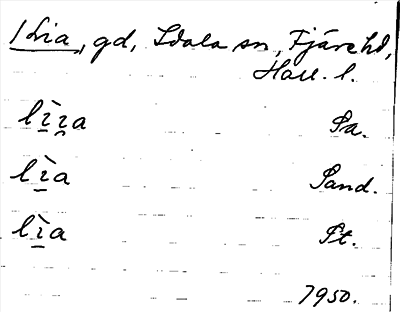 1 Lia, gd, Idala sn, Fjäre hd,
Hall. l.
lì̱ɪ̯a Sa.
lì̱a Sand.
lì̱a St.
1950.